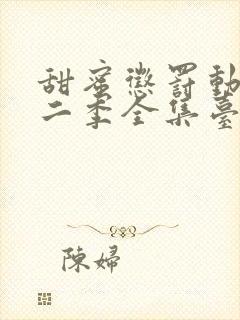 甜蜜懲罰動
二季全集臺
陳婦